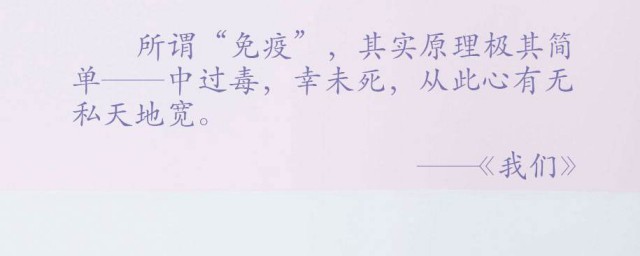 所谓“免疫”，其实原理极其简
单——中过毒，幸未死，从此心有无
私天地宽。
——《我们》